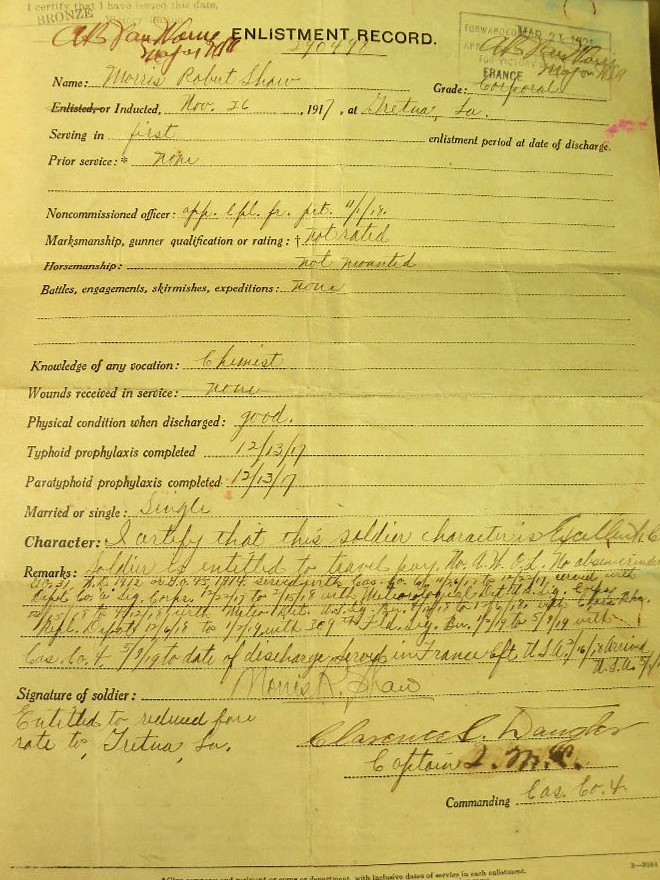 I certify that I have issued this date,
BRONZE Victory
ENLISTMENT RECORD.
FORWARDED MAR 21 1921
FOR VICTORY
FRANCE
Name: Morris Robert Shaw
Grade: Corporal
Enlisted, or Inducted, Nov. 26, 1917, at Gretna, La.
Serving in first enlistment period at date of discharge.
Prior service:* none
Noncommissioned officer: app. Cpl. fr. pvt. 11/1/18.
Marksmanship, gunner qualification or rating: † not rated
Horsemanship: not mounted
Battles, engagements, skirmishes, expeditions: none
Knowledge of any vocation: Chemist
Wounds received in service: none
Physical condition when discharged: good.
Typhoid prophylaxis completed 12/13/17
Paratyphoid prophylaxis completed 12/13/17
Married or single: Single
Character: I certify that this soldier character is Excellent
Remarks: Soldier is entitled to travel pay. No A.W.O.L. No absence under
G.O. 31 W.D. 1912 or G.O. 45, 1914. Served with Cas. Co. 11/26/17 to 12/27/17, served with
Depot Co. "a" Sig. Corps. 12/27/17 to 2/15/18 with Meteorological Det. U.S. Sig. Corps
with Meteo. Det. U.S. Sig. Bn. to 12/6/18 with
Repl. Depot 12/6/18 to 1/7/19, with 309th Fld. Sig. Bn. 1/7/19 to 5/9/19 with
Cas. Co. 4, 5/9/19 to date of discharge. Served in France Lft. U.S.A. /16/18 Arrived
U.S.A. 5/
Signature of soldier: Morris R. Shaw
Entitled to reduced fare
rate to, Gretna, La.
Clarence
Captain
Commanding Cas. Co. 4.
3—3164
with inclusive dates of service in each enlistment.